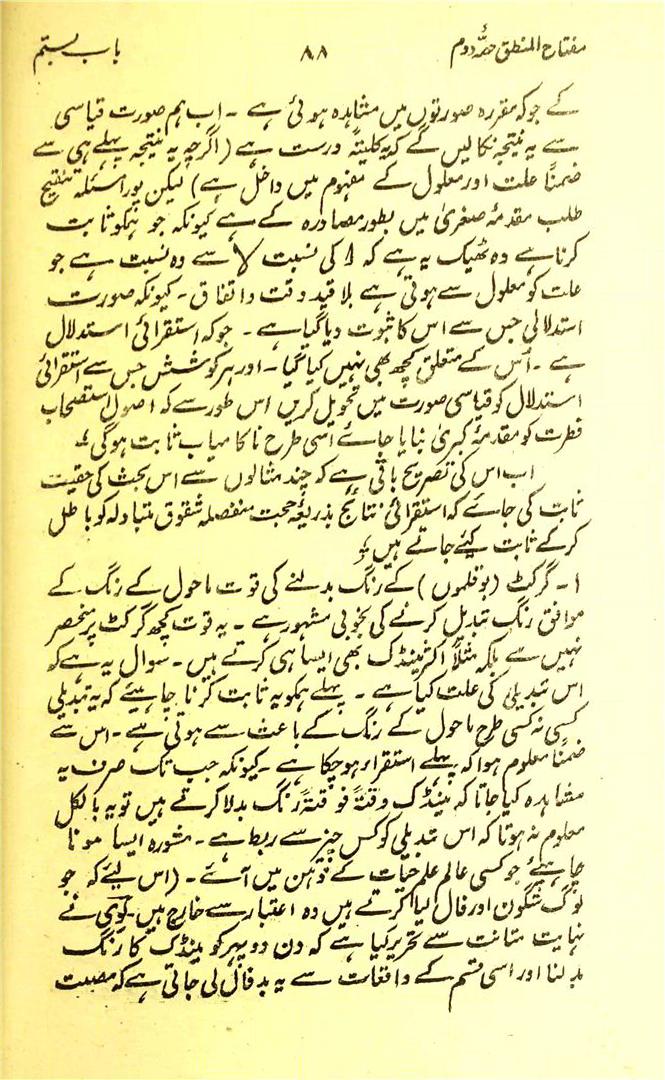 مفتاح المنطق حصۂ دوم ۸۸ باب بستم
کے جو کہ مقررہ صورتوں میں مشاہدہ ہوئی ہے ۔ اب ہم صورت قیاسی
سے یہ نتیجہ نکالیں گے کہ یہ کلیتہً درست ہے (اگرچہ یہ نتیجہ پہلے ہی سے
ضمناً علت اور معلول کے مفہوم میں داخل ہے) لیکن پورا مسئلہ تنقیح
طلب مقدمۂ صغریٰ میں بطور مصادرہ کے ہے کیونکہ جو ہمکو ثابت
کرنا ہے وہ ٹھیک یہ ہے کہ ا کی نسبت لا سے وہ نسبت ہے جو
علت کو معلول سے ہوتی ہے بلا قید وقت و اتفاق ۔ کیونکہ صورت
استدلالی جس سے اس کا ثبوت دیا گیا ہے ۔ جو کہ استقرائی استدلال
ہے ۔ اُس کے متعلق کچھ بھی نہیں کیا گیا ۔ اور ہر کوشش جس سے استقرائی
استدلال کو قیاسی صورت میں تحویل کریں اس طور سے کہ اصول استصحاب
فطرت کو مقدمۂ کبریٰ بنایا جائے اسی طرح ناکامیاب ثابت ہوگی ؎
اب اس کی تصریح باقی ہے کہ چند مثالوں سے اس بحث کی حقیت
ثابت کی جائے کہ استقرائی نتائج بذریعۂ حجت منفصلہ شقوق متبادلہ کو باطل
کرکے ثابت کیئے جاتے ہیں ؎
۱ ۔ گرگٹ (بوقلموں) کے رنگ بدلنے کی قوت ماحول کے رنگ کے
موافق رنگ تبدیل کرنے کی بخوبی مشہور ہے ۔ یہ قوت کچھ گرگٹ پر منحصر
نہیں ہے بلکہ مثلاً اکثر مینڈک بھی ایسا ہی کرتے ہیں ۔ سوال یہ ہے کہ
اس تبدیلی کی علت کیا ہے ۔ پہلے ہمکو یہ ثابت کرنا چاہیئے کہ یہ تبدیلی
کسی نہ کسی طرح ماحول کے رنگ کے باعث سے ہوتی ہے ۔ اس سے
ضمناً معلوم ہوا کہ پہلے استقراء ہوچکا ہے ۔ کیونکہ جب تک صرف یہ
مشاہدہ کیا جاتا کہ مینڈک وقتہً فوقتہً رنگ بدلا کرتے ہیں تو یہ بالکل
معلوم نہ ہوتا کہ اس تبدیلی کو کس چیز سے ربط ہے ۔ مشورہ ایسا ہونا
چاہیئے جو کسی عالم علم حیات کے ذہن میں آئے ۔ (اس لیئے کہ جو
لوگ شگون اور فال لیا کرتے ہیں وہ اعتبار سے خارج ہیں ۔ نے
نہایت متانت سے تحریر کیا ہے کہ دن دوپہر کو مینڈک کا رنگ
بدلنا اور اسی قسم کے واقعات سے یہ بدفال لی جاتی ہے کہ مصیبت